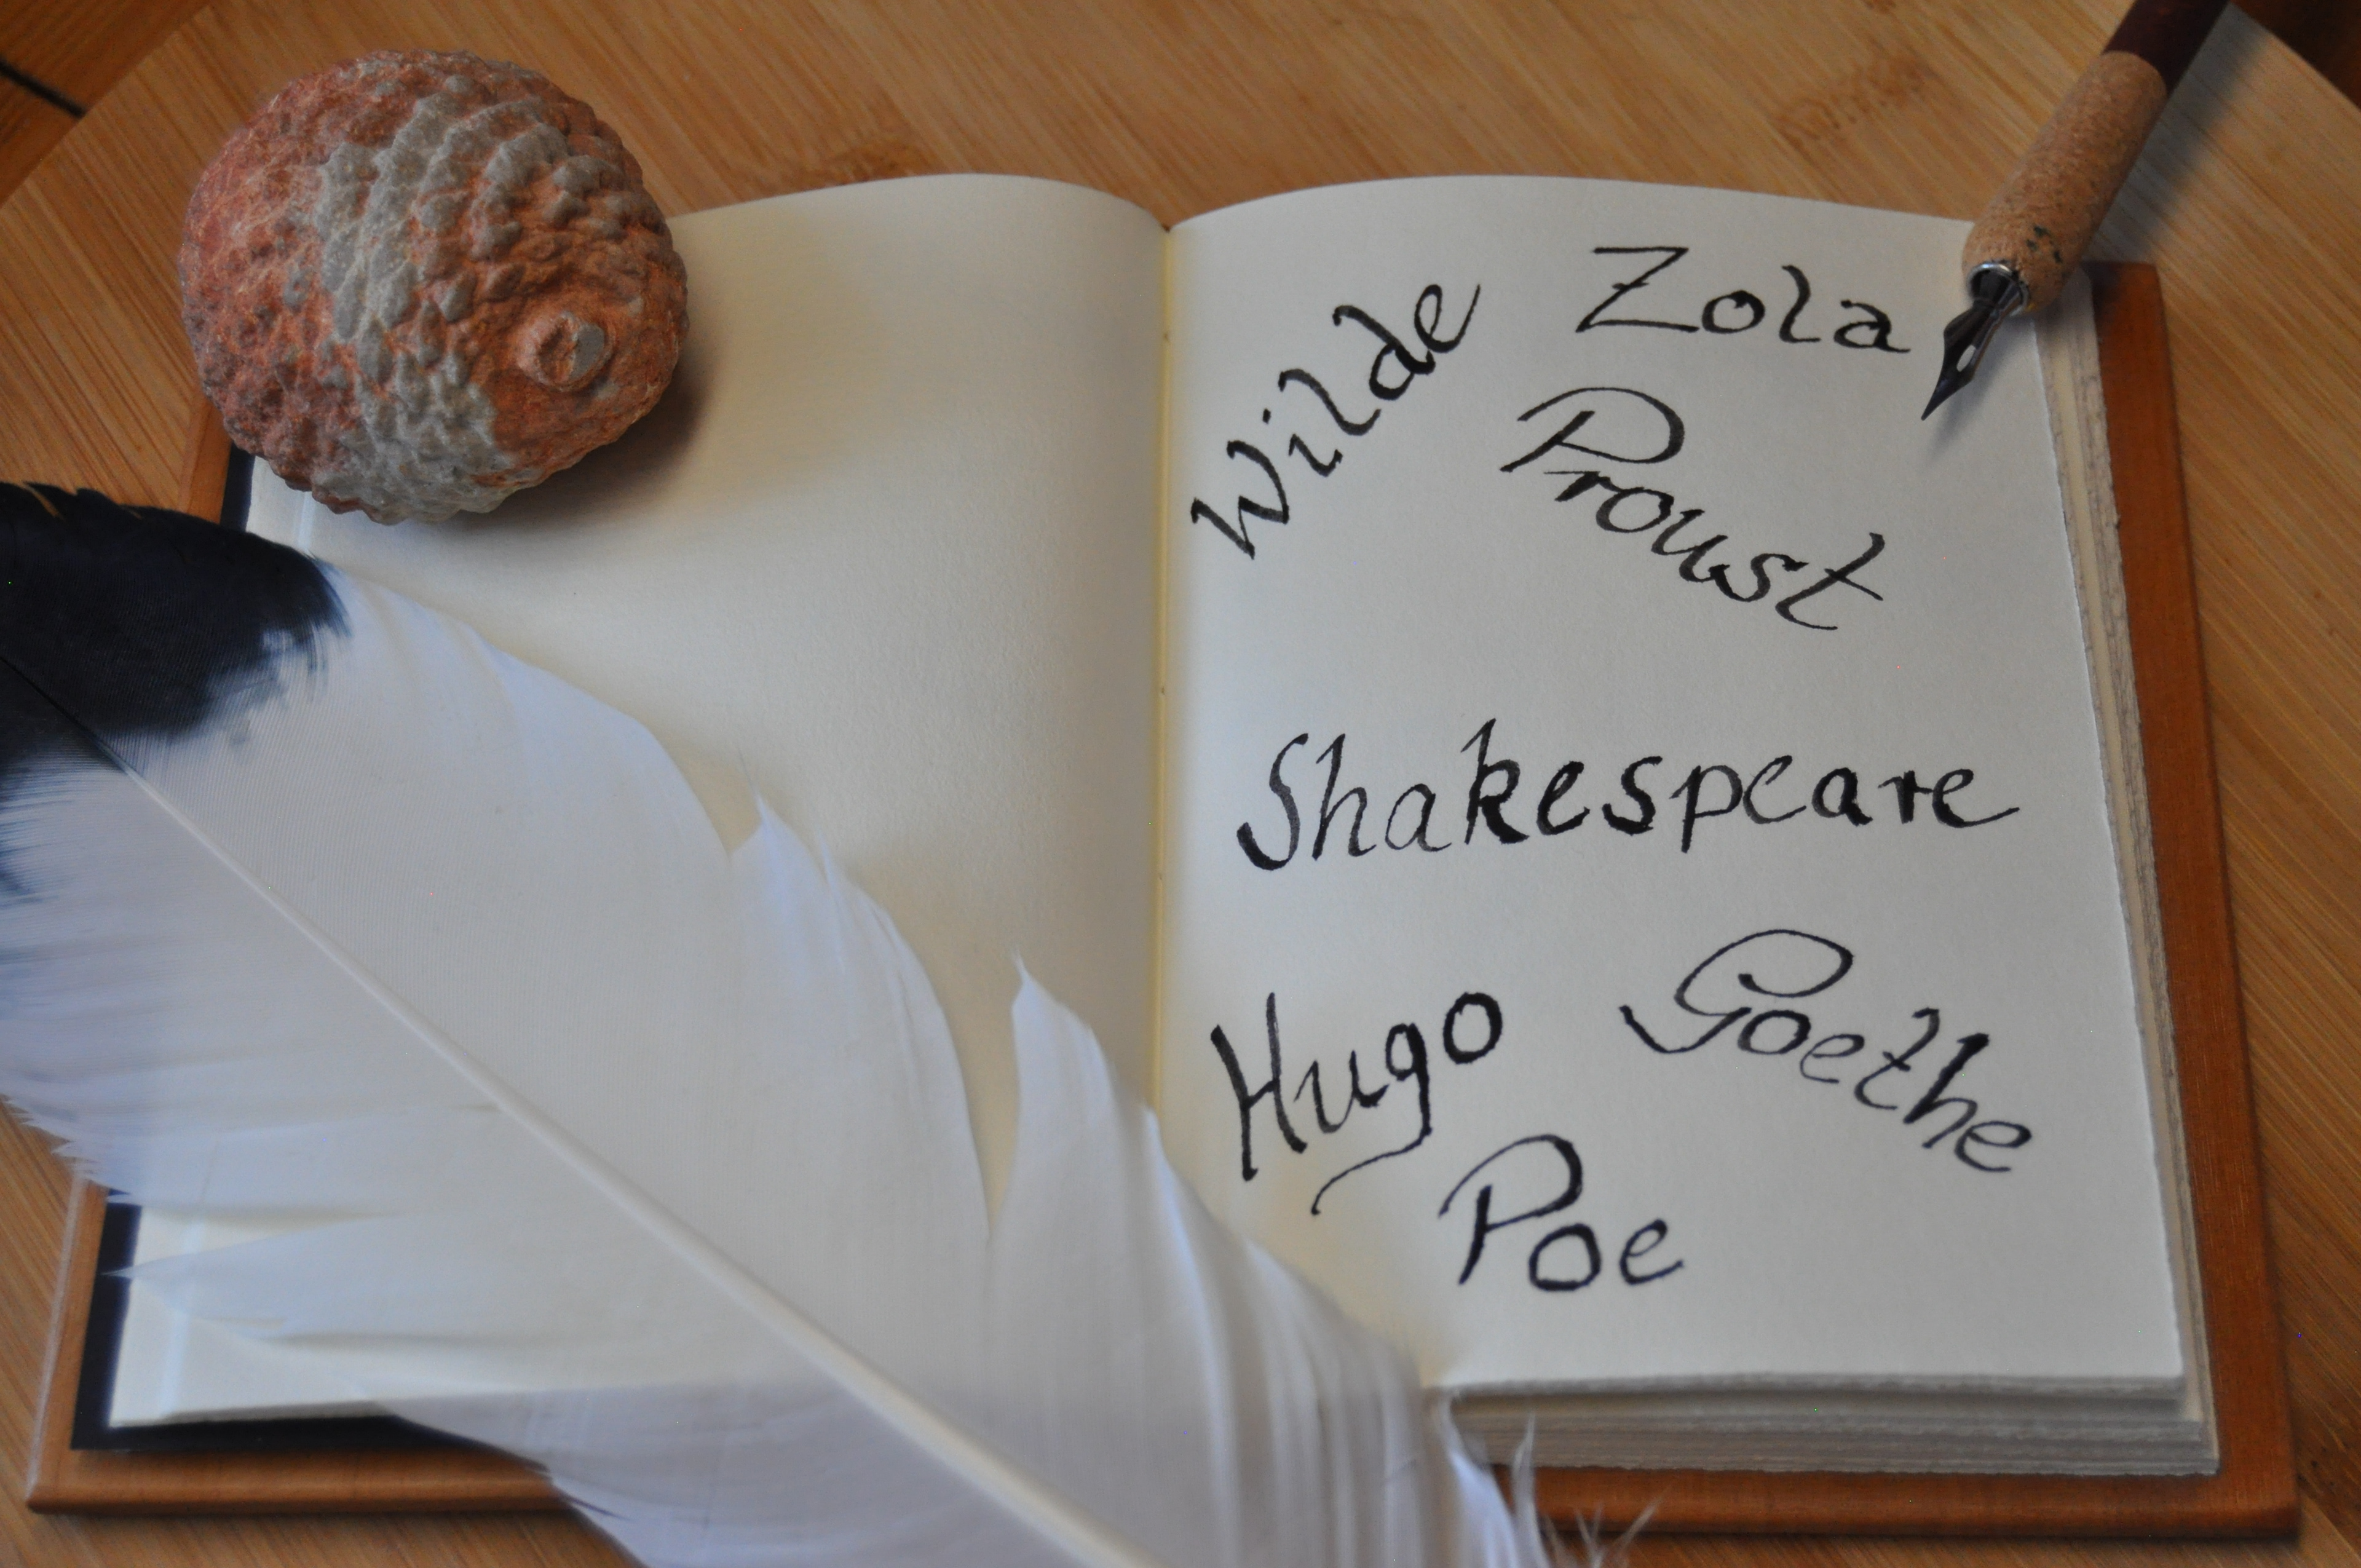 Wilde
Zola
Proust
Shakespeare
Hugo
Goethe
Poe